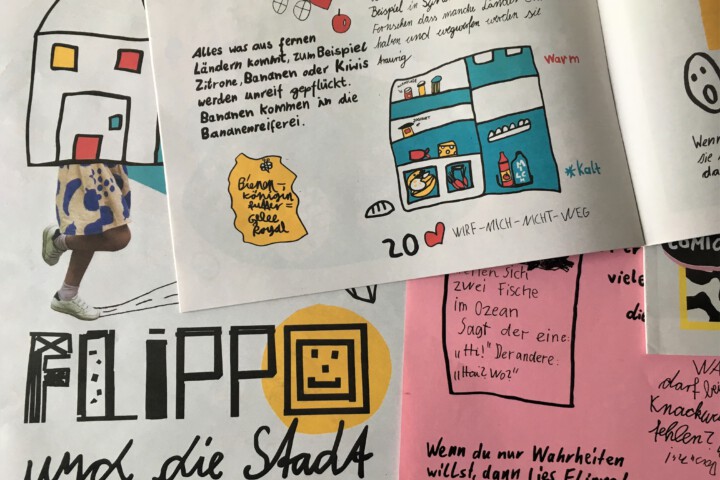 Alles was aus fernen
Ländern kommt, zum Beispiel
Zitrone, Bananen oder Kiwis
werden unreif gepflückt.
Bananen kommen in die
Bananenreiferei.
Beispiel in
Fernsehen dass manche Länder
haben und wegwerfen werden sie
traurig
Warm
*Kalt
Bienen-
königin
futter =
Gelee
Royal
20 WIRF-MICH-NICHT-WEG
Wenn
sie
da
FLIPPO
und die Stadt
sich
zwei Fische
im Ozean
Sagt der eine:
„Hi!" Der andere:
„Hai? Wo?"
viele
die
COMIC
WA
darf bei
Knackwu
fehlen?
Wenn du nur Wahrheiten
willst, dann lies